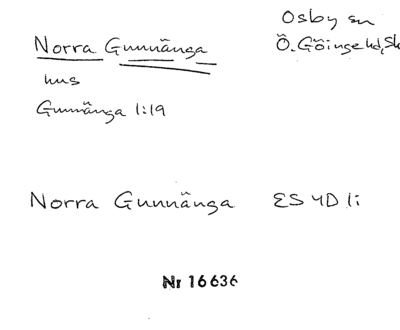 Osby sn
Norra Gunnänga Ö. Göinge hd, Sk
hus
Gunnänga 1:19
Norra Gunnänga ES 4D 1i
Nr 16636